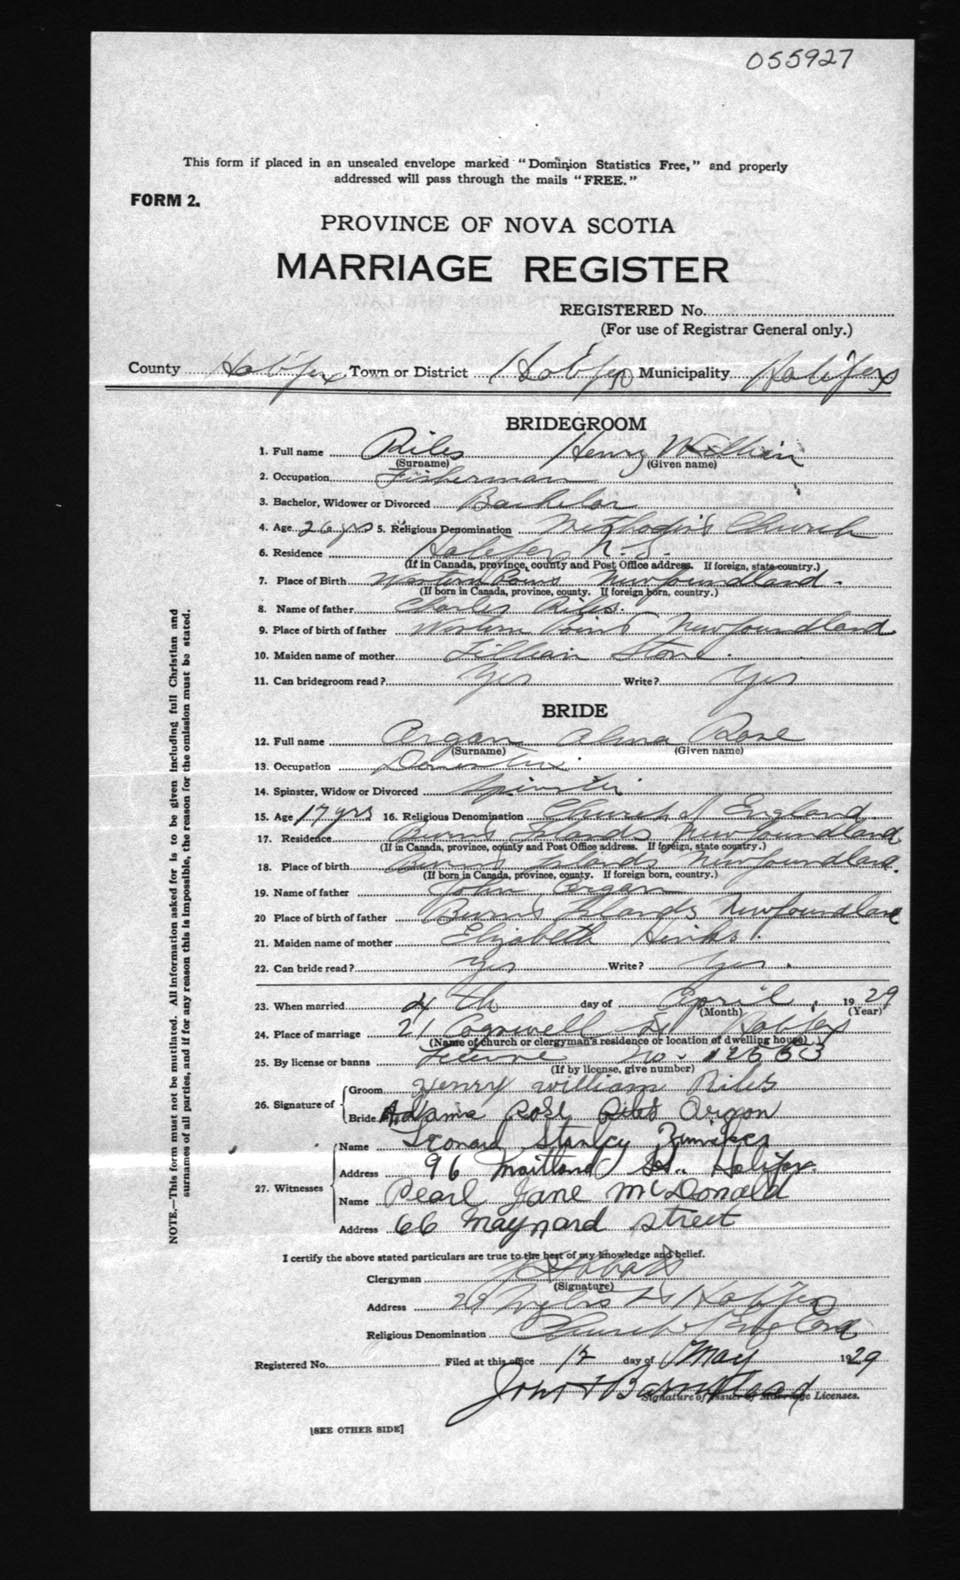 055927
This form if placed in an unsealed envelope marked "Dominion Statistics Free," and properly
addressed will pass through the mails "FREE."
FORM 2.
PROVINCE OF NOVA SCOTIA
MARRIAGE REGISTER
REGISTERED No.
(For use of Registrar General only.)
County Halifax Town or District Halifax Municipality Halifax
BRIDEGROOM
1. Full name Riles Henry William
(Surname) (Given name)
2. Occupation Fisherman
3. Bachelor, Widower or Divorced Bachelor
4. Age 26 yrs 5. Religious Denomination Church
6. Residence Halifax N. S.
(If in Canada, province, county and Post Office address. If foreign, state country.)
7. Place of Birth Western Newfoundland.
(If born in Canada, province, county. If foreign born, country.)
8. Name of father Charles Riles.
9. Place of birth of father Western Newfoundland
10. Maiden name of mother Lillian Stone.
11. Can bridegroom read? Yes Write? Yes
BRIDE
12. Full name Organ Alma Rose
(Surname) (Given name)
13. Occupation Domestic
14. Spinster, Widow or Divorced Spinster
15. Age 17 yrs 16. Religious Denomination Church of England
17. Residence Islands Newfoundland
(If in Canada, province, county and Post Office address. If foreign, state country.)
18. Place of birth Islands Newfoundland.
(If born in Canada, province, county. If foreign born, country.)
19. Name of father John Organ
20 Place of birth of father Islands Newfoundland
21. Maiden name of mother Elizabeth
22. Can bride read? Yes Write? Yes.
23. When married 4th day of April, 1929
(Month) (Year)
24. Place of marriage 21 Cogswell St Halifax
(Name of church or clergyman's residence or location of dwelling house)
25. By license or banns License No.
(If by license, give number)
26. Signature of Groom Henry william Riles
Bride Rose Riles Organ
27. Witnesses Name Leonard Stanley
Address 96 Maitland St. Halifax.
Name Pearl Jane McDonald
Address 66 Maynard street
I certify the above stated particulars are true to the best of my knowledge and belief.
Clergyman
(Signature)
Address St Halifax
Religious Denomination Church of England
Registered No. Filed at this office 12 day of May 1929
John
Signature of Issuer of Marriage Licenses.
[SEE OTHER SIDE]
NOTE.—This form must not be mutilated. All information asked for is to be given including full Christian and
surnames of all parties, and if for any reason this is impossible, the reason for the omission must be stated.